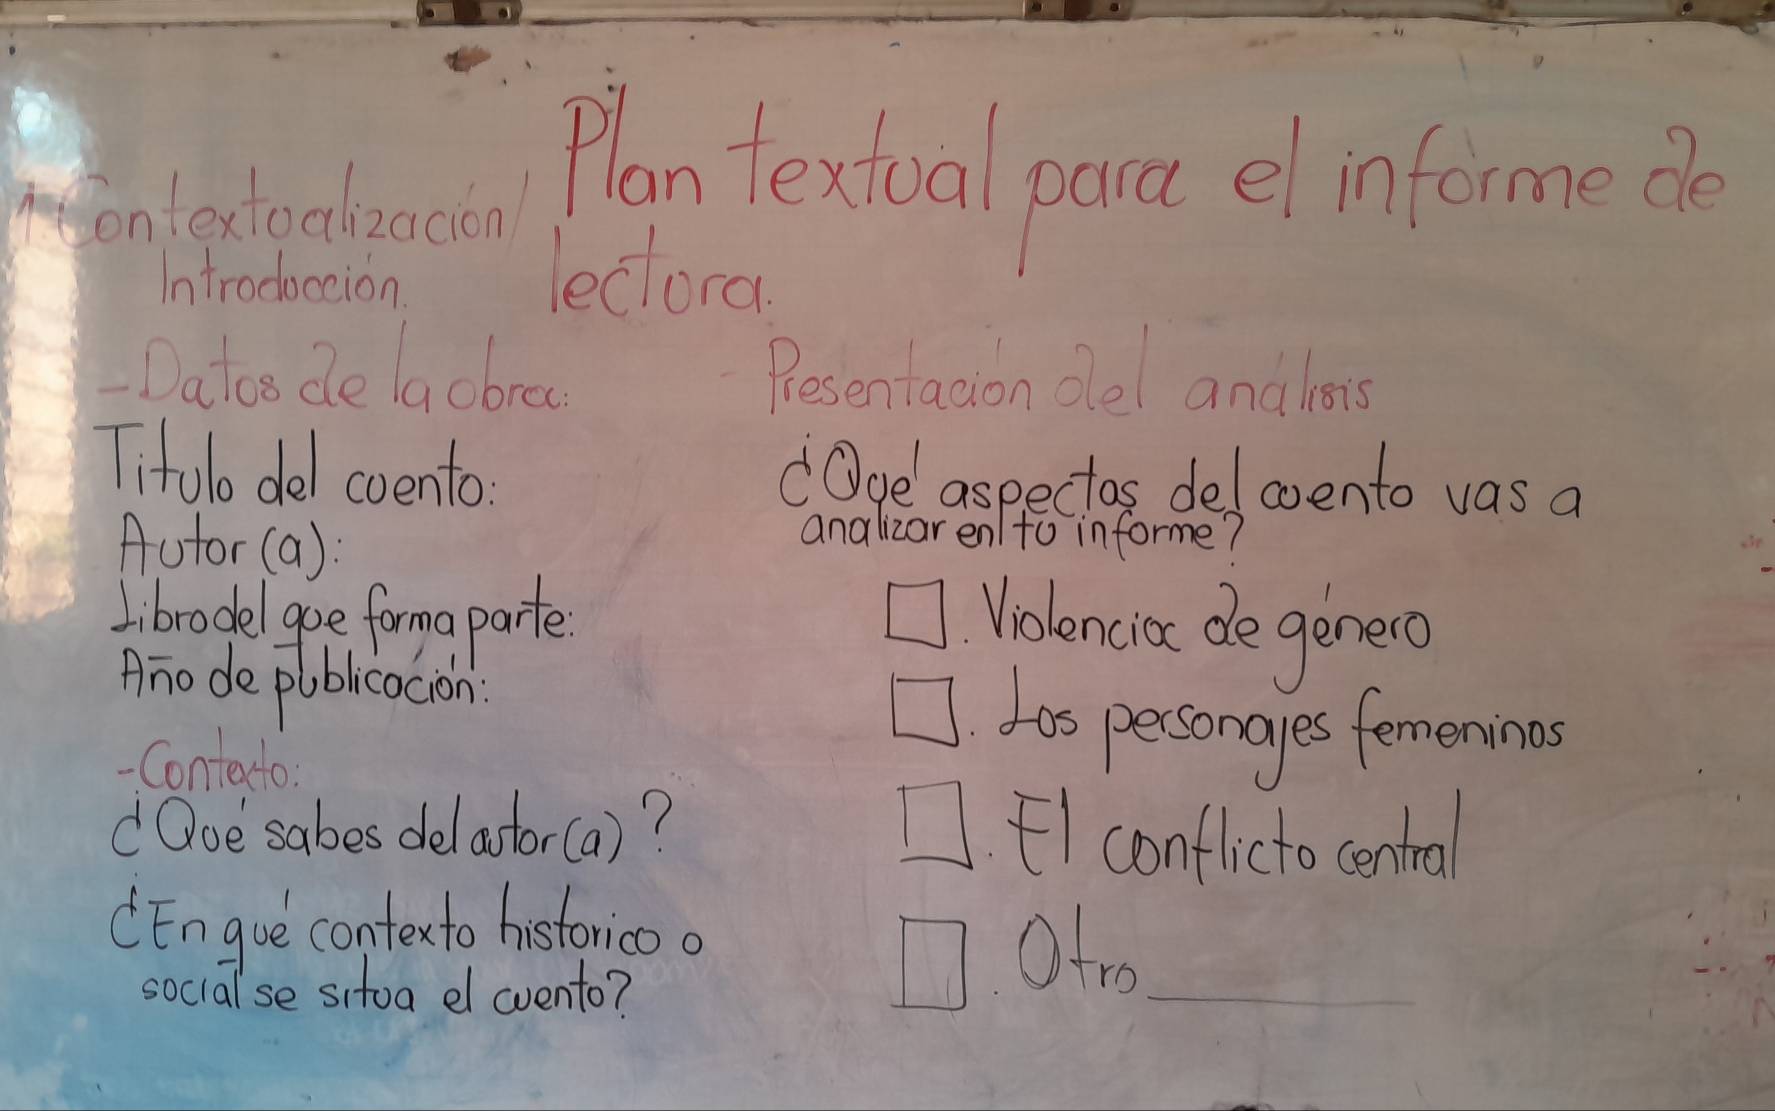 Plan textual para el informe de
lectora.
1 Contextualización/
Introducción.
- Datos de la obra:
Titulo del cuento:
Autor (a):
Libro del que forma parte:
Año de publicación:
- Contexto:
¿Qué sabes del autor (a)?
¿En qué contexto historico o
social se situa el cuento?
- Presentación del análisis
¿Qué aspectos del cuento vas a
analizar en tu informe?
□. Violencia de género
□. Los personajes femeninos
□. El conflicto central
□. Otro ________